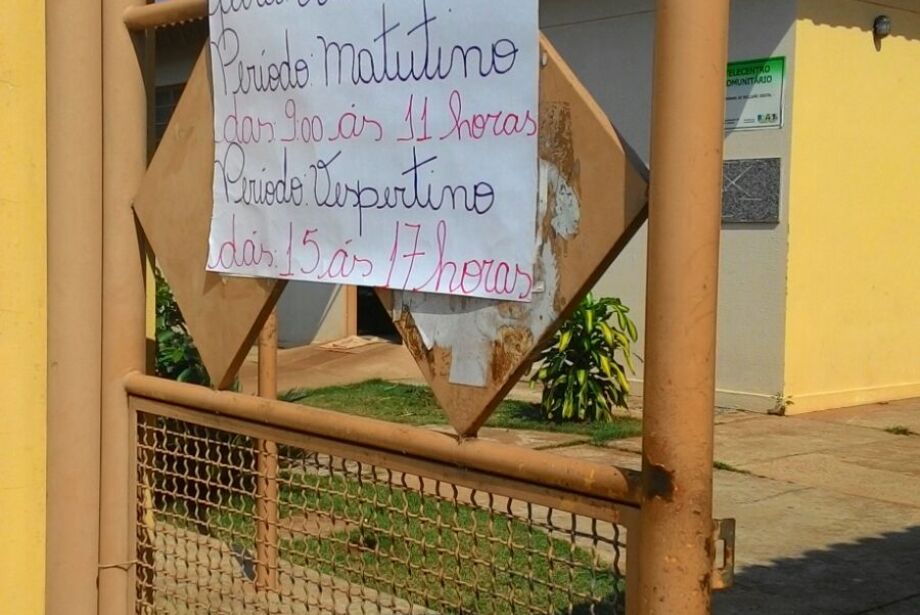 Período: Matutino
das 9:00 ás 11 horas
Período: Vespertino
dás 15 ás 17 horas
TELECENTRO
COMUNITÁRIO